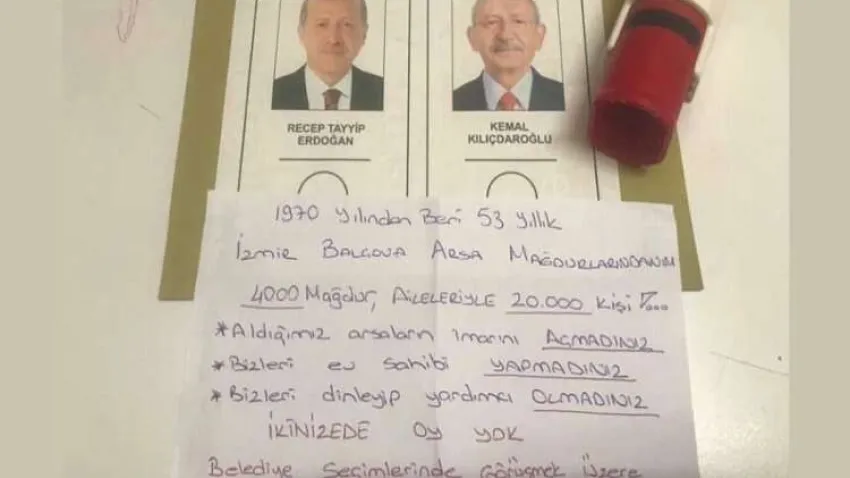 RECEP TAYYİP
ERDOĞAN
KEMAL
KILIÇDAROĞLU
1970 Yılından Beri 53 yıllık
İZMİR BALÇOVA ARSA MAĞDURLARINDANIM
4000 MAĞDUR, AİLELERİYLE 20.000 Kişi
*Aldığımız arsaların imarını AÇMADINIZ
*Bizleri ev sahibi YAPMADINIZ
*Bizleri dinleyip yardımcı OLMADINIZ
İKİNİZEDE OY YOK
Belediye Seçimlerinde Görüşmek Üzere